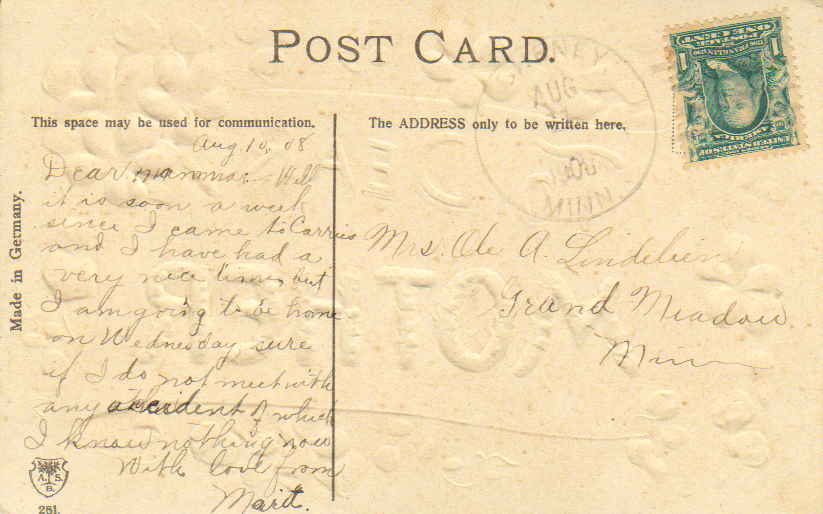 POST CARD.
This space may be used for communication.
The ADDRESS only to be written here.
Made in Germany.
Aug 10, 08
Dear mamma:- Well
it is soon a week
since I came to Carries
and I have had a
very nice time, but
I am going to be home
on Wednesday sure
if I do not meet with
any accident of which
I know nothing now
With love from
Marit.
A. S.
B.
281.
AUG
MINN
ONE CENT
1 1
Mrs. Ole A.
Grand Meadow
Minn
MOTHER